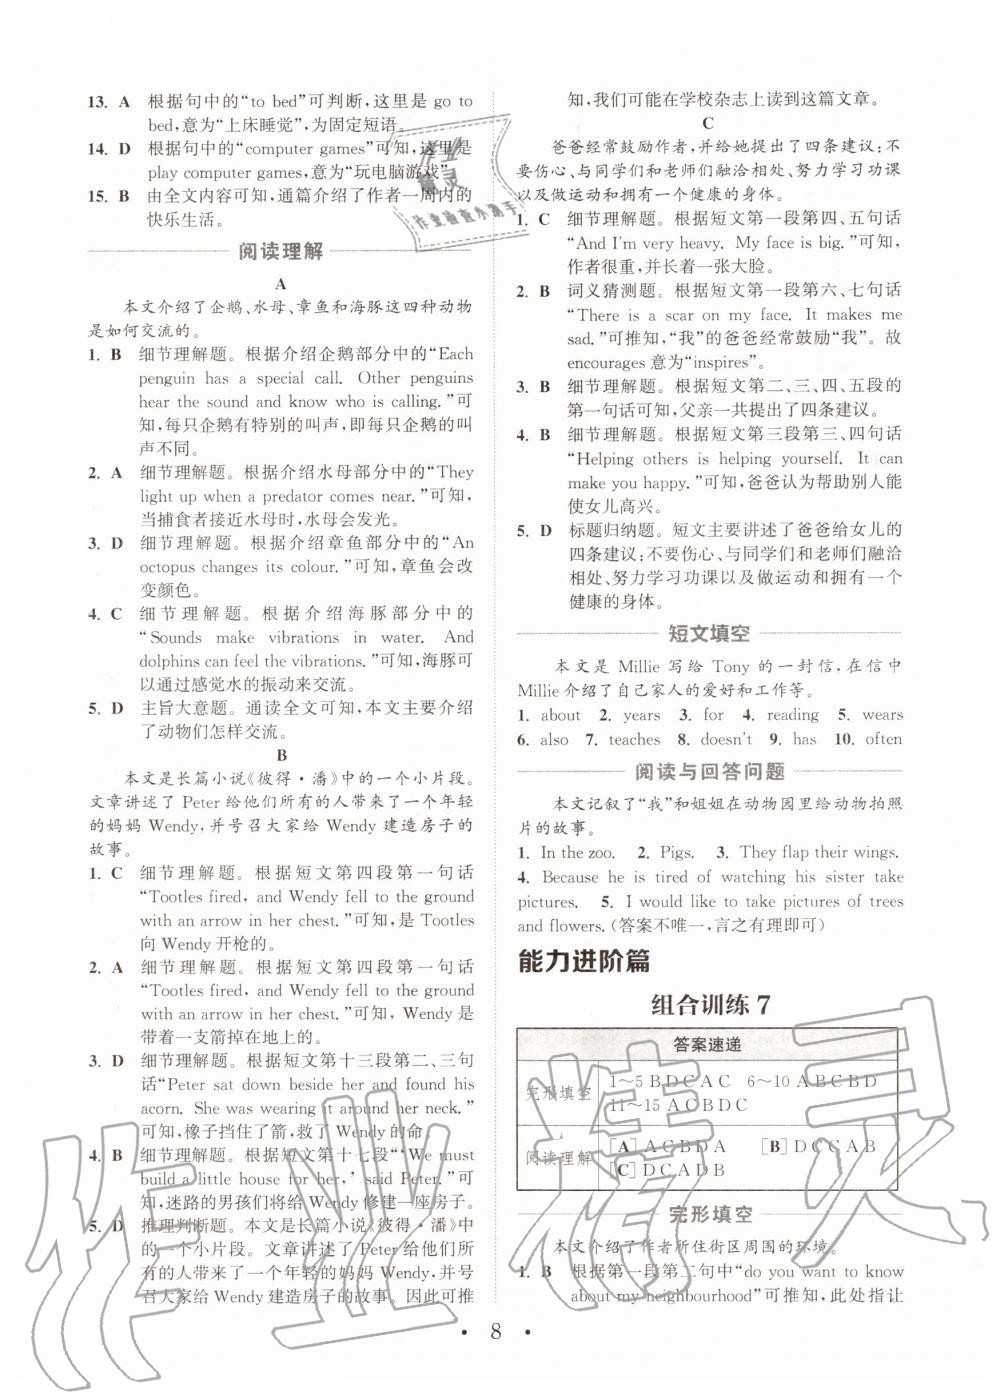 13. A 根据句中的“to bed”可判断，这里是 go to
bed，意为“上床睡觉”，为固定短语。
14. D 根据句中的“computer games”可知，这里是
play computer games，意为“玩电脑游戏”。
15. B 由全文内容可知，通篇介绍了作者一周内的
快乐生活。
阅读理解
A
本文介绍了企鹅、水母、章鱼和海豚这四种动物
是如何交流的。
1. B 细节理解题。根据介绍企鹅部分中的“Each
penguin has a special call. Other penguins
hear the sound and know who is calling. ”可
知，每只企鹅有特别的叫声，即每只企鹅的叫
声不同。
2. A 细节理解题。根据介绍水母部分中的“They
light up when a predator comes near. ”可知，
当捕食者接近水母时，水母会发光。
3. D 细节理解题。根据介绍章鱼部分中的“An
octopus changes its colour. ”可知，章鱼会改
变颜色。
4. C 细节理解题。根据介绍海豚部分中的
“Sounds make vibrations in water. And
dolphins can feel the vibrations. ”可知，海豚可
以通过感觉水的振动来交流。
5. D 主旨大意题。通读全文可知，本文主要介绍
了动物们怎样交流。
B
本文是长篇小说《彼得·潘》中的一个小片段。
文章讲述了 Peter 给他们所有的人带来了一个年轻
的妈妈 Wendy，并号召大家给 Wendy 建造房子的
故事。
1. C 细节理解题。根据短文第四段第一句话
“Tootles fired, and Wendy fell to the ground
with an arrow in her chest. ”可知，是 Tootles
向 Wendy 开枪的。
2. A 细节理解题。根据短文第四段第一句话
“Tootles fired, and Wendy fell to the ground
with an arrow in her chest. ”可知，Wendy 是
带着一支箭掉在地上的。
3. D 细节理解题。根据短文第十三段第二、三句
话“Peter sat down beside her and found his
acorn. She was wearing it around her neck. ”
可知，橡子挡住了箭，救了 Wendy 的命。
4. B 细节理解题。根据短文第十七段“‘We must
build a little house for her,’ said Peter. ”可
知，迷路的男孩们将给 Wendy 修建一座房子。
5. D 推理判断题。本文是长篇小说《彼得·潘》中
的一个小片段。文章讲述了 Peter 给他们所
有的人带来了一个年轻的妈妈 Wendy，并号
召大家给 Wendy 建造房子的故事。因此可推
知，我们可能在学校杂志上读到这篇文章。
C
爸爸经常鼓励作者，并给她提出了四条建议：不
要伤心、与同学们和老师们融洽相处、努力学习功课
以及做运动和拥有一个健康的身体。
1. C 细节理解题。根据短文第一段第四、五句话
“And I'm very heavy. My face is big. ”可知，
作者很重，并长着一张大脸。
2. B 词义猜测题。根据短文第一段第六、七句话
“There is a scar on my face. It makes me
sad. ”可推知，“我”的爸爸经常鼓励“我”。故
encourages 意为“inspires”。
3. B 细节理解题。根据短文第二、三、四、五段的
第一句话可知，父亲一共提出了四条建议。
4. B 细节理解题。根据短文第三段第三、四句话
“Helping others is helping yourself. It can
make you happy. ”可知，爸爸认为帮助别人能
使女儿高兴。
5. D 标题归纳题。短文主要讲述了爸爸给女儿的
四条建议：不要伤心、与同学们和老师们融洽
相处、努力学习功课以及做运动和拥有一个
健康的身体。
短文填空
本文是 Millie 写给 Tony 的一封信，在信中
Millie 介绍了自己家人的爱好和工作等。
1. about 2. years 3. for 4. reading 5. wears
6. also 7. teaches 8. doesn't 9. has 10. often
阅读与回答问题
本文记叙了“我”和姐姐在动物园里给动物拍照
片的故事。
1. In the zoo. 2. Pigs. 3. They flap their wings.
4. Because he is tired of watching his sister take
pictures. 5. I would like to take pictures of trees
and flowers. （答案不唯一，言之有理即可）
能力进阶篇
组合训练 7
答案速递
完形填空 1～5 B D C A C 6～10 A B C B D
11～15 A C B D C
阅读理解 [A] A C B D A [B] D C C A B
[C] D C A D B
完形填空
本文介绍了作者所住街区周围的环境。
1. B 根据第一段第二句中“do you want to know
about my neighbourhood”可推知，此处指让
· 8 ·
作业精灵
作业检查小助手
作业精灵